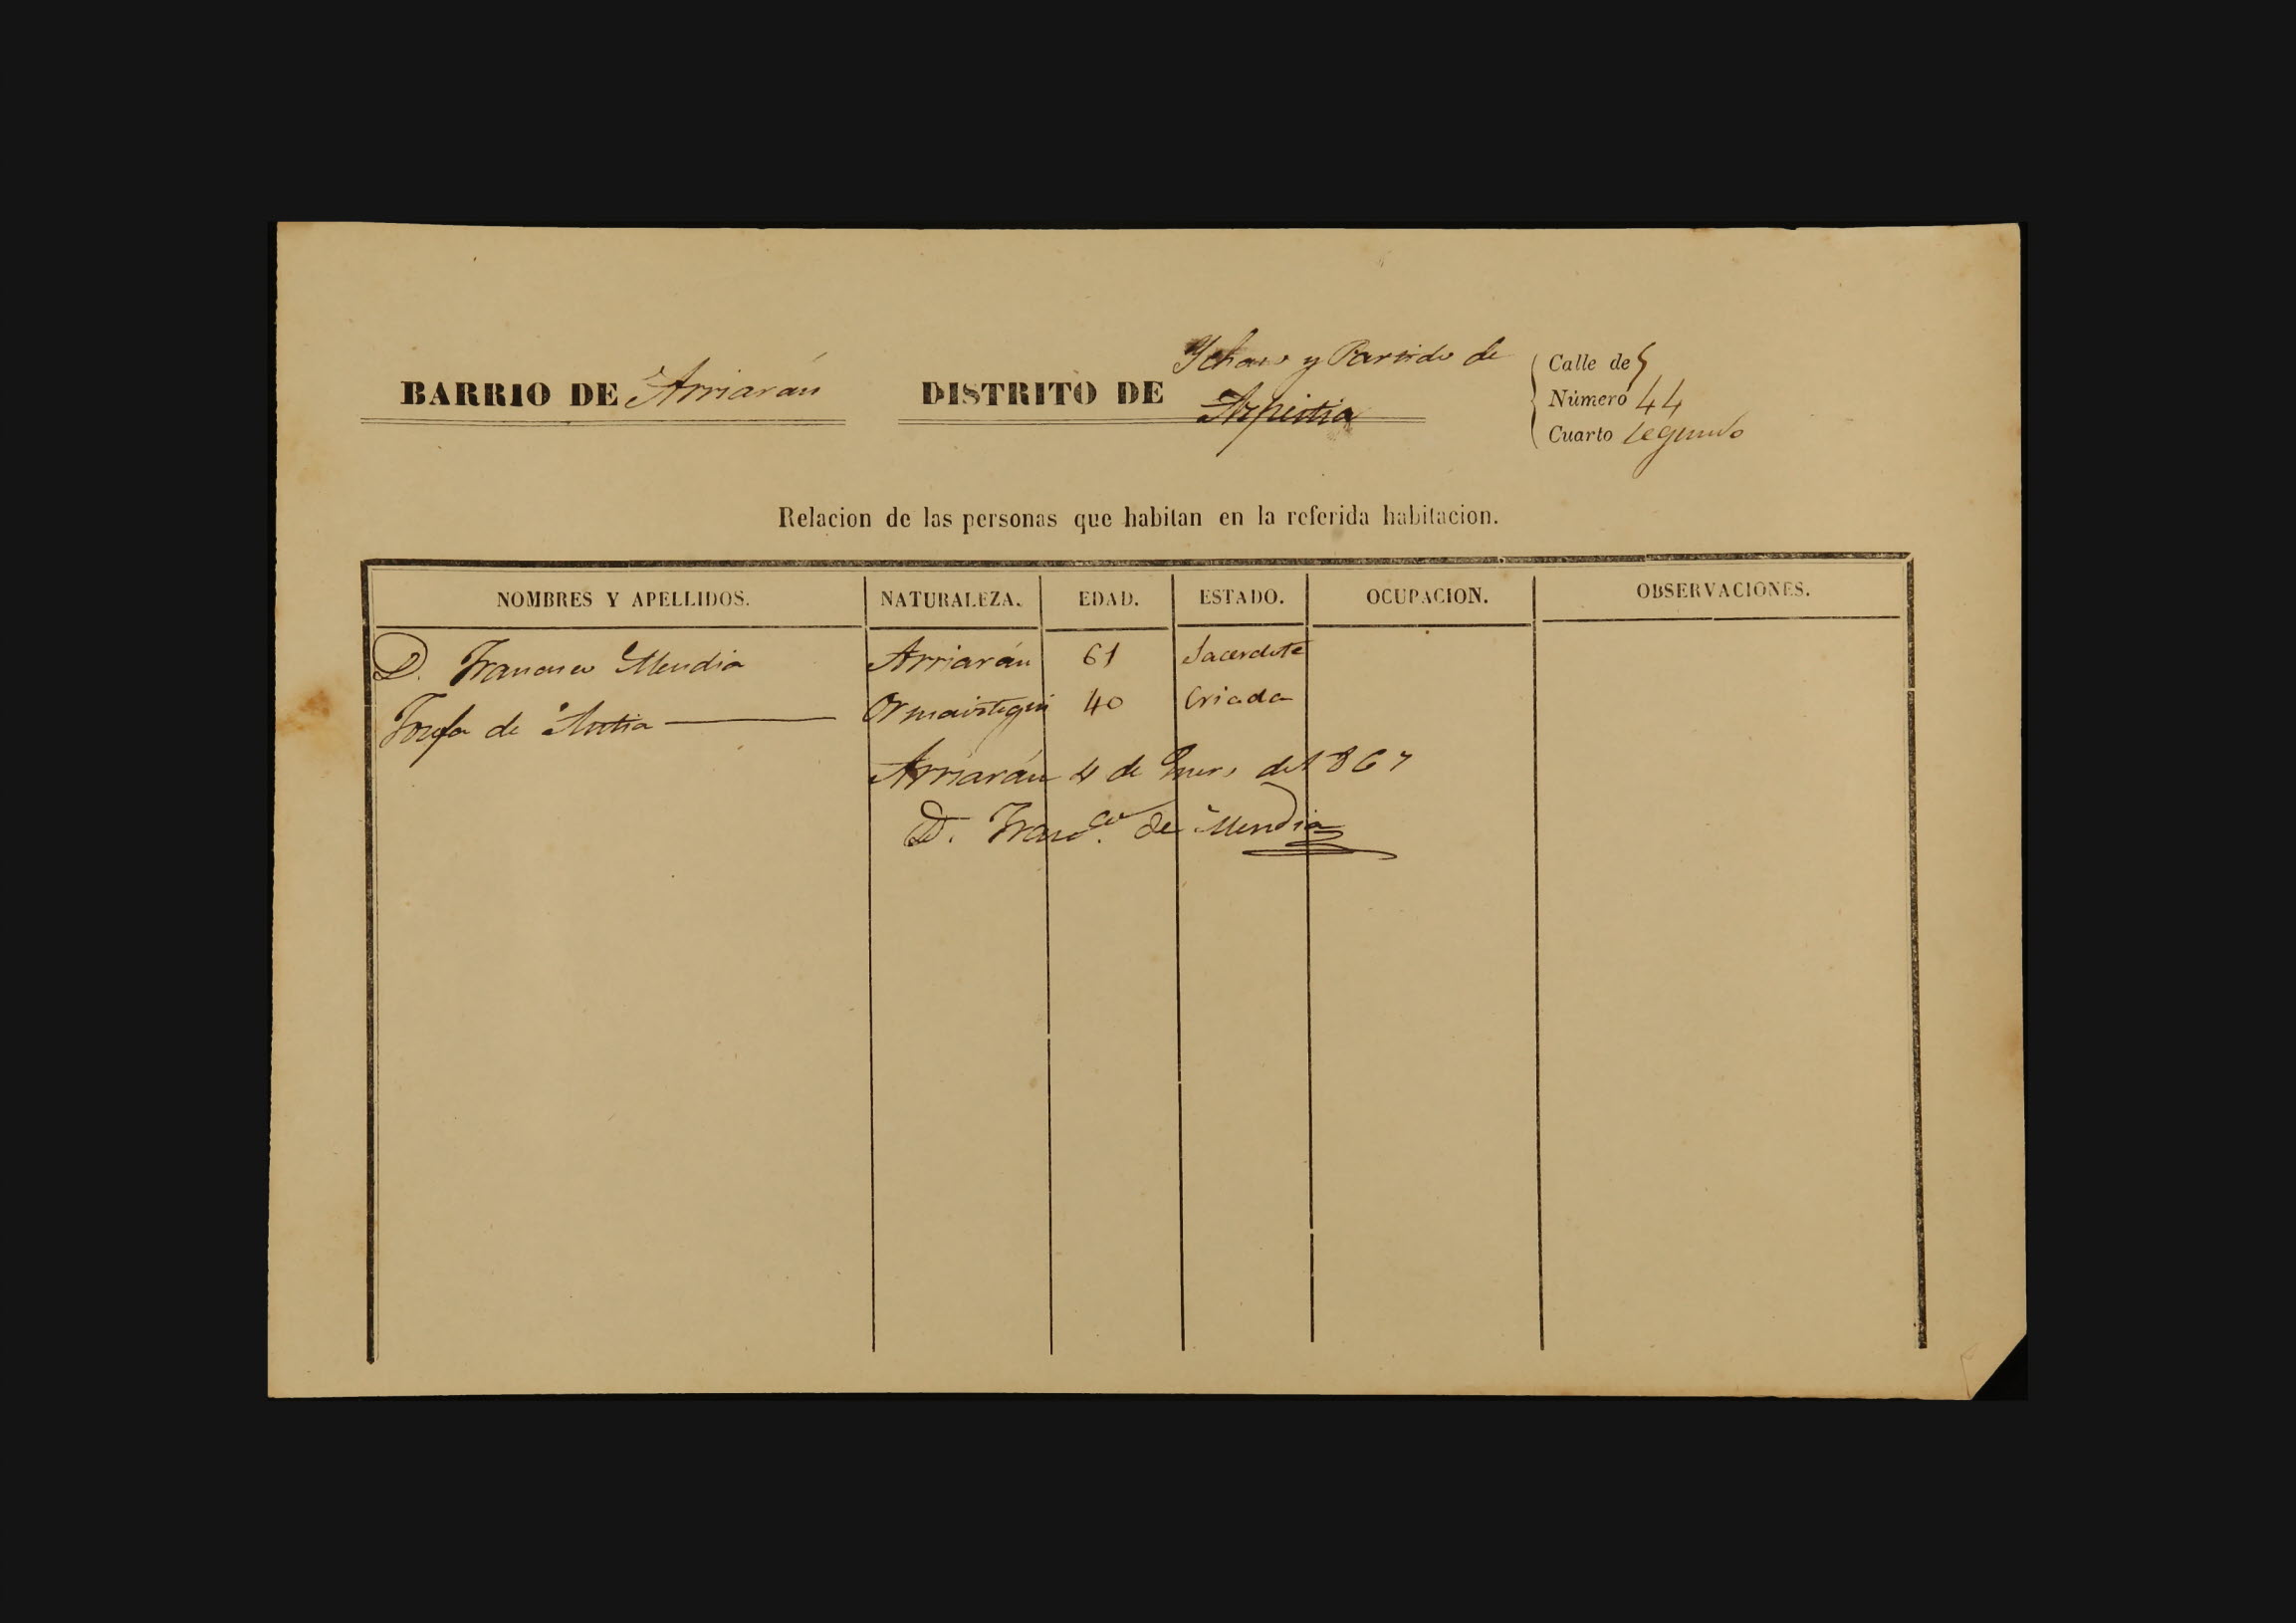 Ychaso y Partido de
BARRIO DE Arriarán DISTRITO DE Azpeitia
Calle de
Número 44
Cuarto segundo
Relacion de las personas que habitan en la referida habitacion.
NOMBRES Y APELLIDOS. NATURALEZA. EDAD. ESTADO. OCUPACION. OBSERVACIONES.
D. Francisco Mendia Arriarán 61 Sacerdote
Josefa de Antia Ormaistegui 40 Criada
Arriarán 4 de Enero de 1867
D. Franco. de Mendia